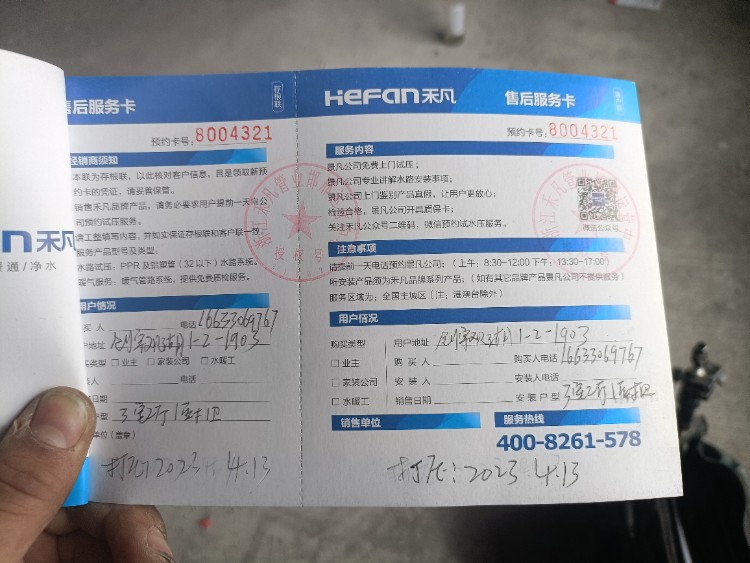 售后服务卡
存根联
预约卡号: 8004321
经销商须知
本联为存根联，以此核对客户信息，且是领取新预
约卡的凭证，请妥善保管。
销售禾凡品牌产品，请务必要求用户提前一天向公
司预约试压服务。
请工整填写内容，并如实保证存根联和客户联一致
服务产品型号及类型:
水路试压: PPR及铝塑管（32以下）水路系统。
暖气服务: 暖气管路系统，提供免费质检服务。
用户情况
买人 电话 16633069767
户地址 1-2-1903
买类型 □ 业主 □ 家装公司 □ 水暖工
人 电话
日期
户型 3室2厅1厨1卫
单位（盖章）
打压: 2023 4.13
n禾凡
暖通/净水
HeFan禾凡
售后服务卡
预约卡号: 8004321
服务内容
景凡公司免费上门试压；
景凡公司专业讲解水路安装事项；
景凡公司上门鉴别产品真假，让用户更放心；
检验合格，景凡公司开具质保卡；
关注禾凡公众号二维码，微信预约试水压服务。
微信公众号
注意事项
请提前一天电话预约景凡公司；（上午: 8:30-12:00 下午: 13:30-17:00）
所安装产品须为禾凡品牌系列产品；（如有其它品牌产品景凡公司不提供服务）
服务区域为: 全国主城区（注: 港澳台除外）
用户情况
购买类型 用户地址 1-2-1903
□ 业主 购买人 购买人电话 16633069767
□ 家装公司 安装人 安装人电话
□ 水暖工 销售日期 安装户型 3室2厅1厨1卫
销售单位
服务热线
400-8261-578
打压: 2023 4.13